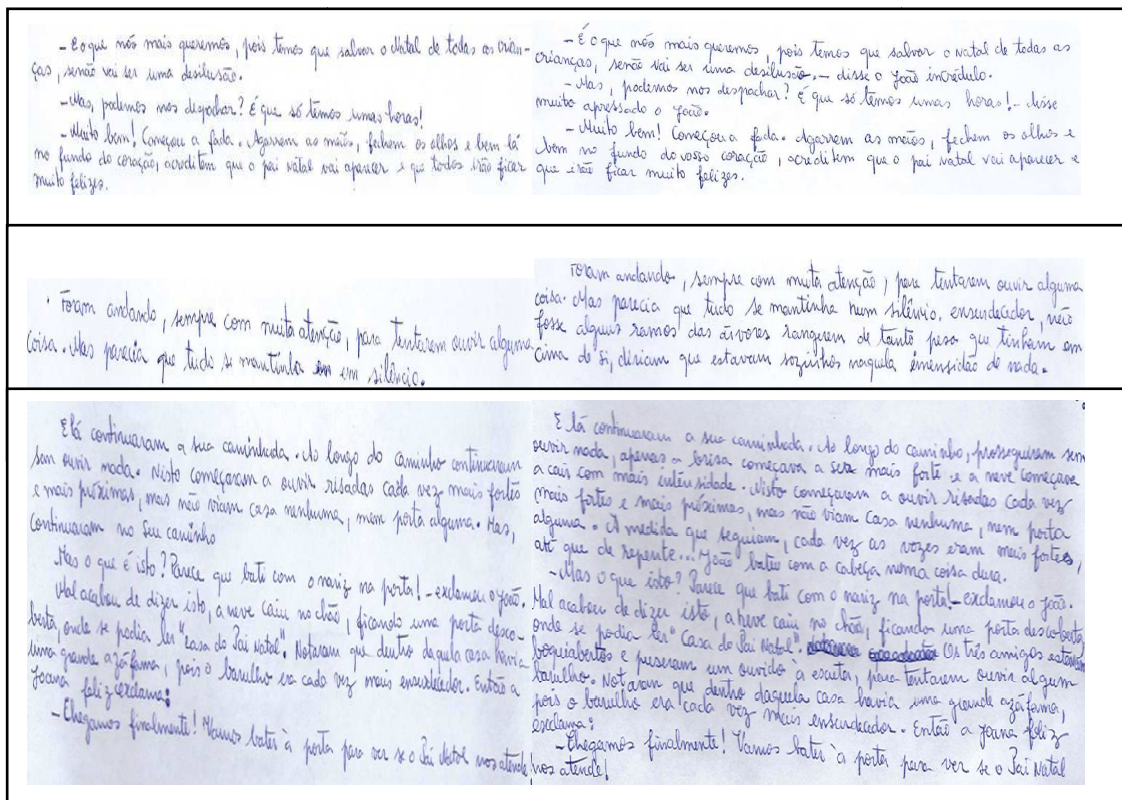 - E o que nós mais queremos, pois temos que salvar o Natal de todas as crian-
ças, senão vai ser uma desilusão.
- Mas, podemos nos despachar? É que só temos umas horas!
- Muito bem! Começou a fada. Agarrem as mãos, fechem os olhos e bem lá
no fundo do coração, acreditem que o pai natal vai aparecer e que todos irão ficar
muito felizes.
- É o que nós mais queremos, pois temos que salvar o natal de todas as
crianças, senão vai ser uma desilusão. - disse o João incrédulo.
- Mas, podemos nos despachar? É que só temos umas horas! - disse
muito apressado o João.
- Muito bem! Começou a fada. Agarrem as mãos, fechem os olhos e
bem no fundo do vosso coração, acreditem que o pai natal vai aparecer e
que irão ficar muito felizes.
Foram andando, sempre com muita atenção, para tentarem ouvir alguma
coisa. Mas parecia que tudo se mantinha em silêncio.
Foram andando, sempre com muita atenção, para tentarem ouvir alguma
coisa. Mas parecia que tudo se mantinha num silêncio, ensurdecedor, não
fosse alguns ramos das árvores rangerem de tanto peso que tinham em
cima de si, diriam que estavam sozinhos naquela imensidão de nada.
E lá continuaram a sua caminhada. Ao longo do caminho continuaram
sem ouvir nada. Nisto começaram a ouvir risadas cada vez mais fortes
e mais próximas, mas não viam casa nenhuma, nem porta alguma. Mas,
continuavam no seu caminho
Mas o que é isto? Parece que bati com o nariz na porta! - exclamou o João.
Mal acabou de dizer isto, a neve caiu no chão, ficando uma porta desco-
berta, onde se podia ler "casa do Pai Natal". Notaram que dentro daquela casa havia
uma grande azáfama, pois o barulho era cada vez mais ensurdecedor. Então a
Joana feliz exclama:
- Chegamos finalmente! Vamos bater à porta para ver se o Pai Natal nos atende!
E lá continuaram a sua caminhada. Ao longo do caminho, prosseguiram sem
ouvir nada, apenas a brisa começava a ser mais forte e a neve começava
a cair com mais intensidade. Nisto começaram a ouvir risadas cada vez
mais fortes e mais próximas, mas não viam casa nenhuma, nem porta
alguma. À medida que seguiam, cada vez as vozes eram mais fortes,
até que de repente... João bateu com a cabeça numa coisa dura.
- Mas o que isto? Parece que bati com o nariz na porta! - exclamou o João.
Mal acabou de dizer isto, a neve caiu no chão, ficando uma porta descoberta,
onde se podia ler "Casa do Pai Natal". Os três amigos estavam
boquiabertos e puseram um ouvido à escuta, para tentarem ouvir algum
barulho. Notaram que dentro daquela casa havia uma grande azáfama,
pois o barulho era cada vez mais ensurdecedor. Então a Joana feliz
exclama:
- Chegamos finalmente! Vamos bater à porta para ver se o Pai Natal
nos atende!